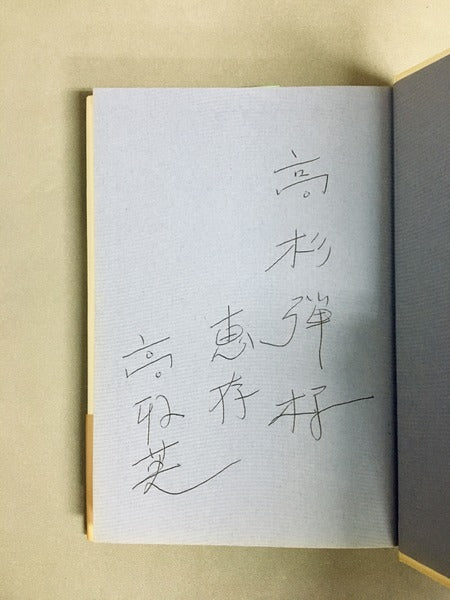 高杉弾様
恵存
高取英